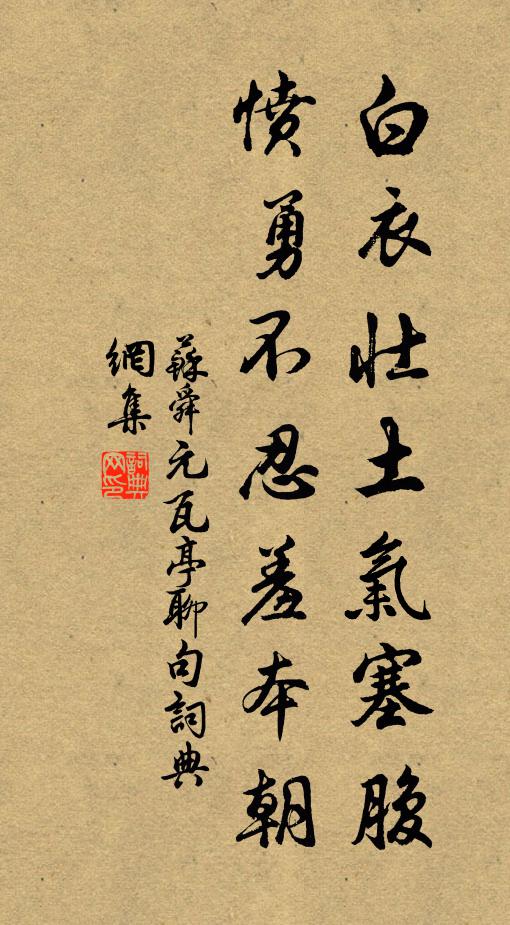 白衣壯士氣塞腹
憤勇不忍羞本朝
蘇舜元瓦亭聊句詞典
網集
詞典网印